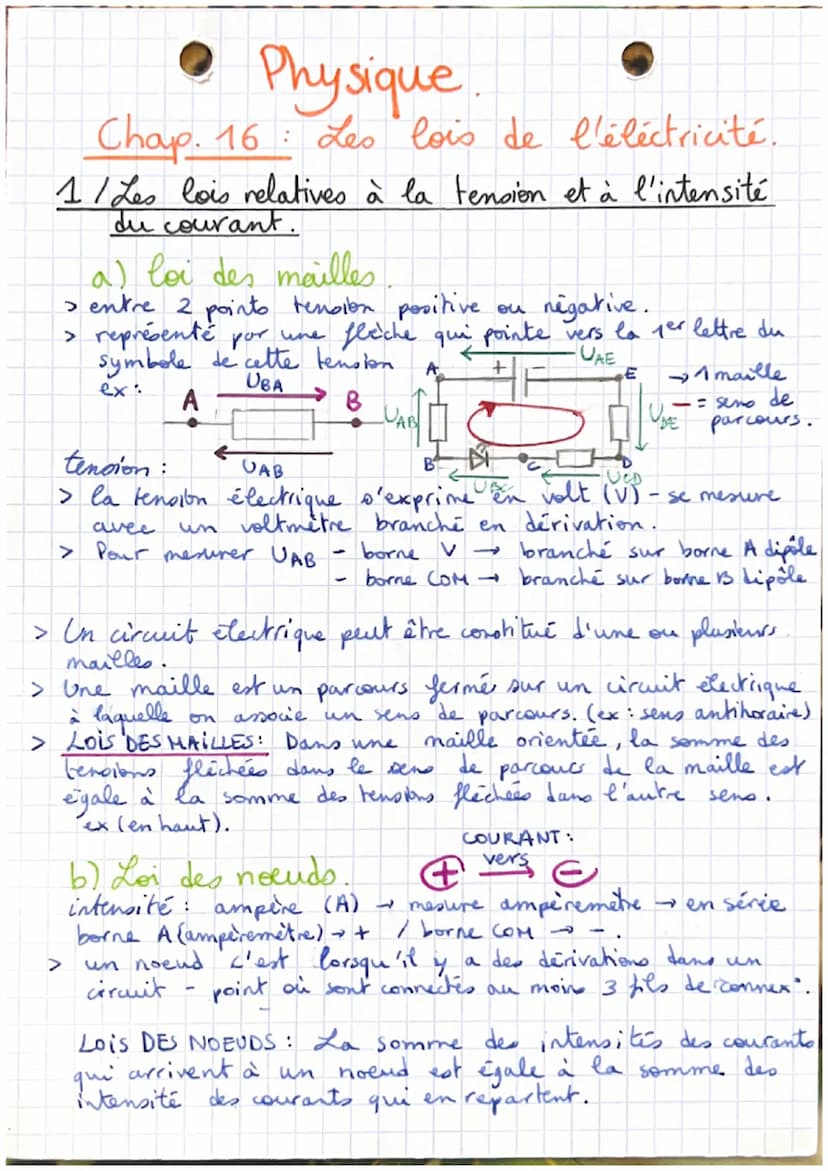 Physique.
Chap. 16 : Les lois de l'éléctricité.
1/ Les lois relatives à la tension et à l'intensité
du courant.
a) loi des mailles.
> entre 2 points tension positive ou négative.
> représenté par une flèche qui pointe vers la 1er lettre du
symbole de cette tension
ex :
UBA
A
B
UAB
UAE
A
+
-
E
UAB
UDE
B
C
D
UBC
UCD
→ 1 maille
— = sens de
parcours.
tension :
> la tension électrique s'exprime en volt (V) - se mesure
avec un voltmètre branché en dérivation.
> Pour mesurer UAB - borne V → branché sur borne A dipôle
- borne COM → branché sur borne B dipôle
> Un circuit électrique peut être constitué d'une ou plusieurs
mailles.
> Une maille est un parcours fermés sur un circuit électrique
à laquelle on associe un sens de parcours. (ex : sens antihoraire)
> LOIS DES MAILLES : Dans une maille orientée, la somme des
tensions fléchées dans le sens de parcours de la maille est
égale à la somme des tensions fléchées dans l'autre sens.
ex (en haut).
COURANT :
b) Loi des noeuds.
+ vers -
intensité : ampère (A) → mesure ampèremètre → en série
borne A (ampèremètre) → + / borne COM → -.
> un noeud c'est lorsqu'il y a des dérivations dans un
circuit - point où sont connectés au moins 3 fils de connex°.
LOIS DES NOEUDS : La somme des intensités des courants
qui arrivent à un noeud est égale à la somme des
intensité des courants qui en repartent.